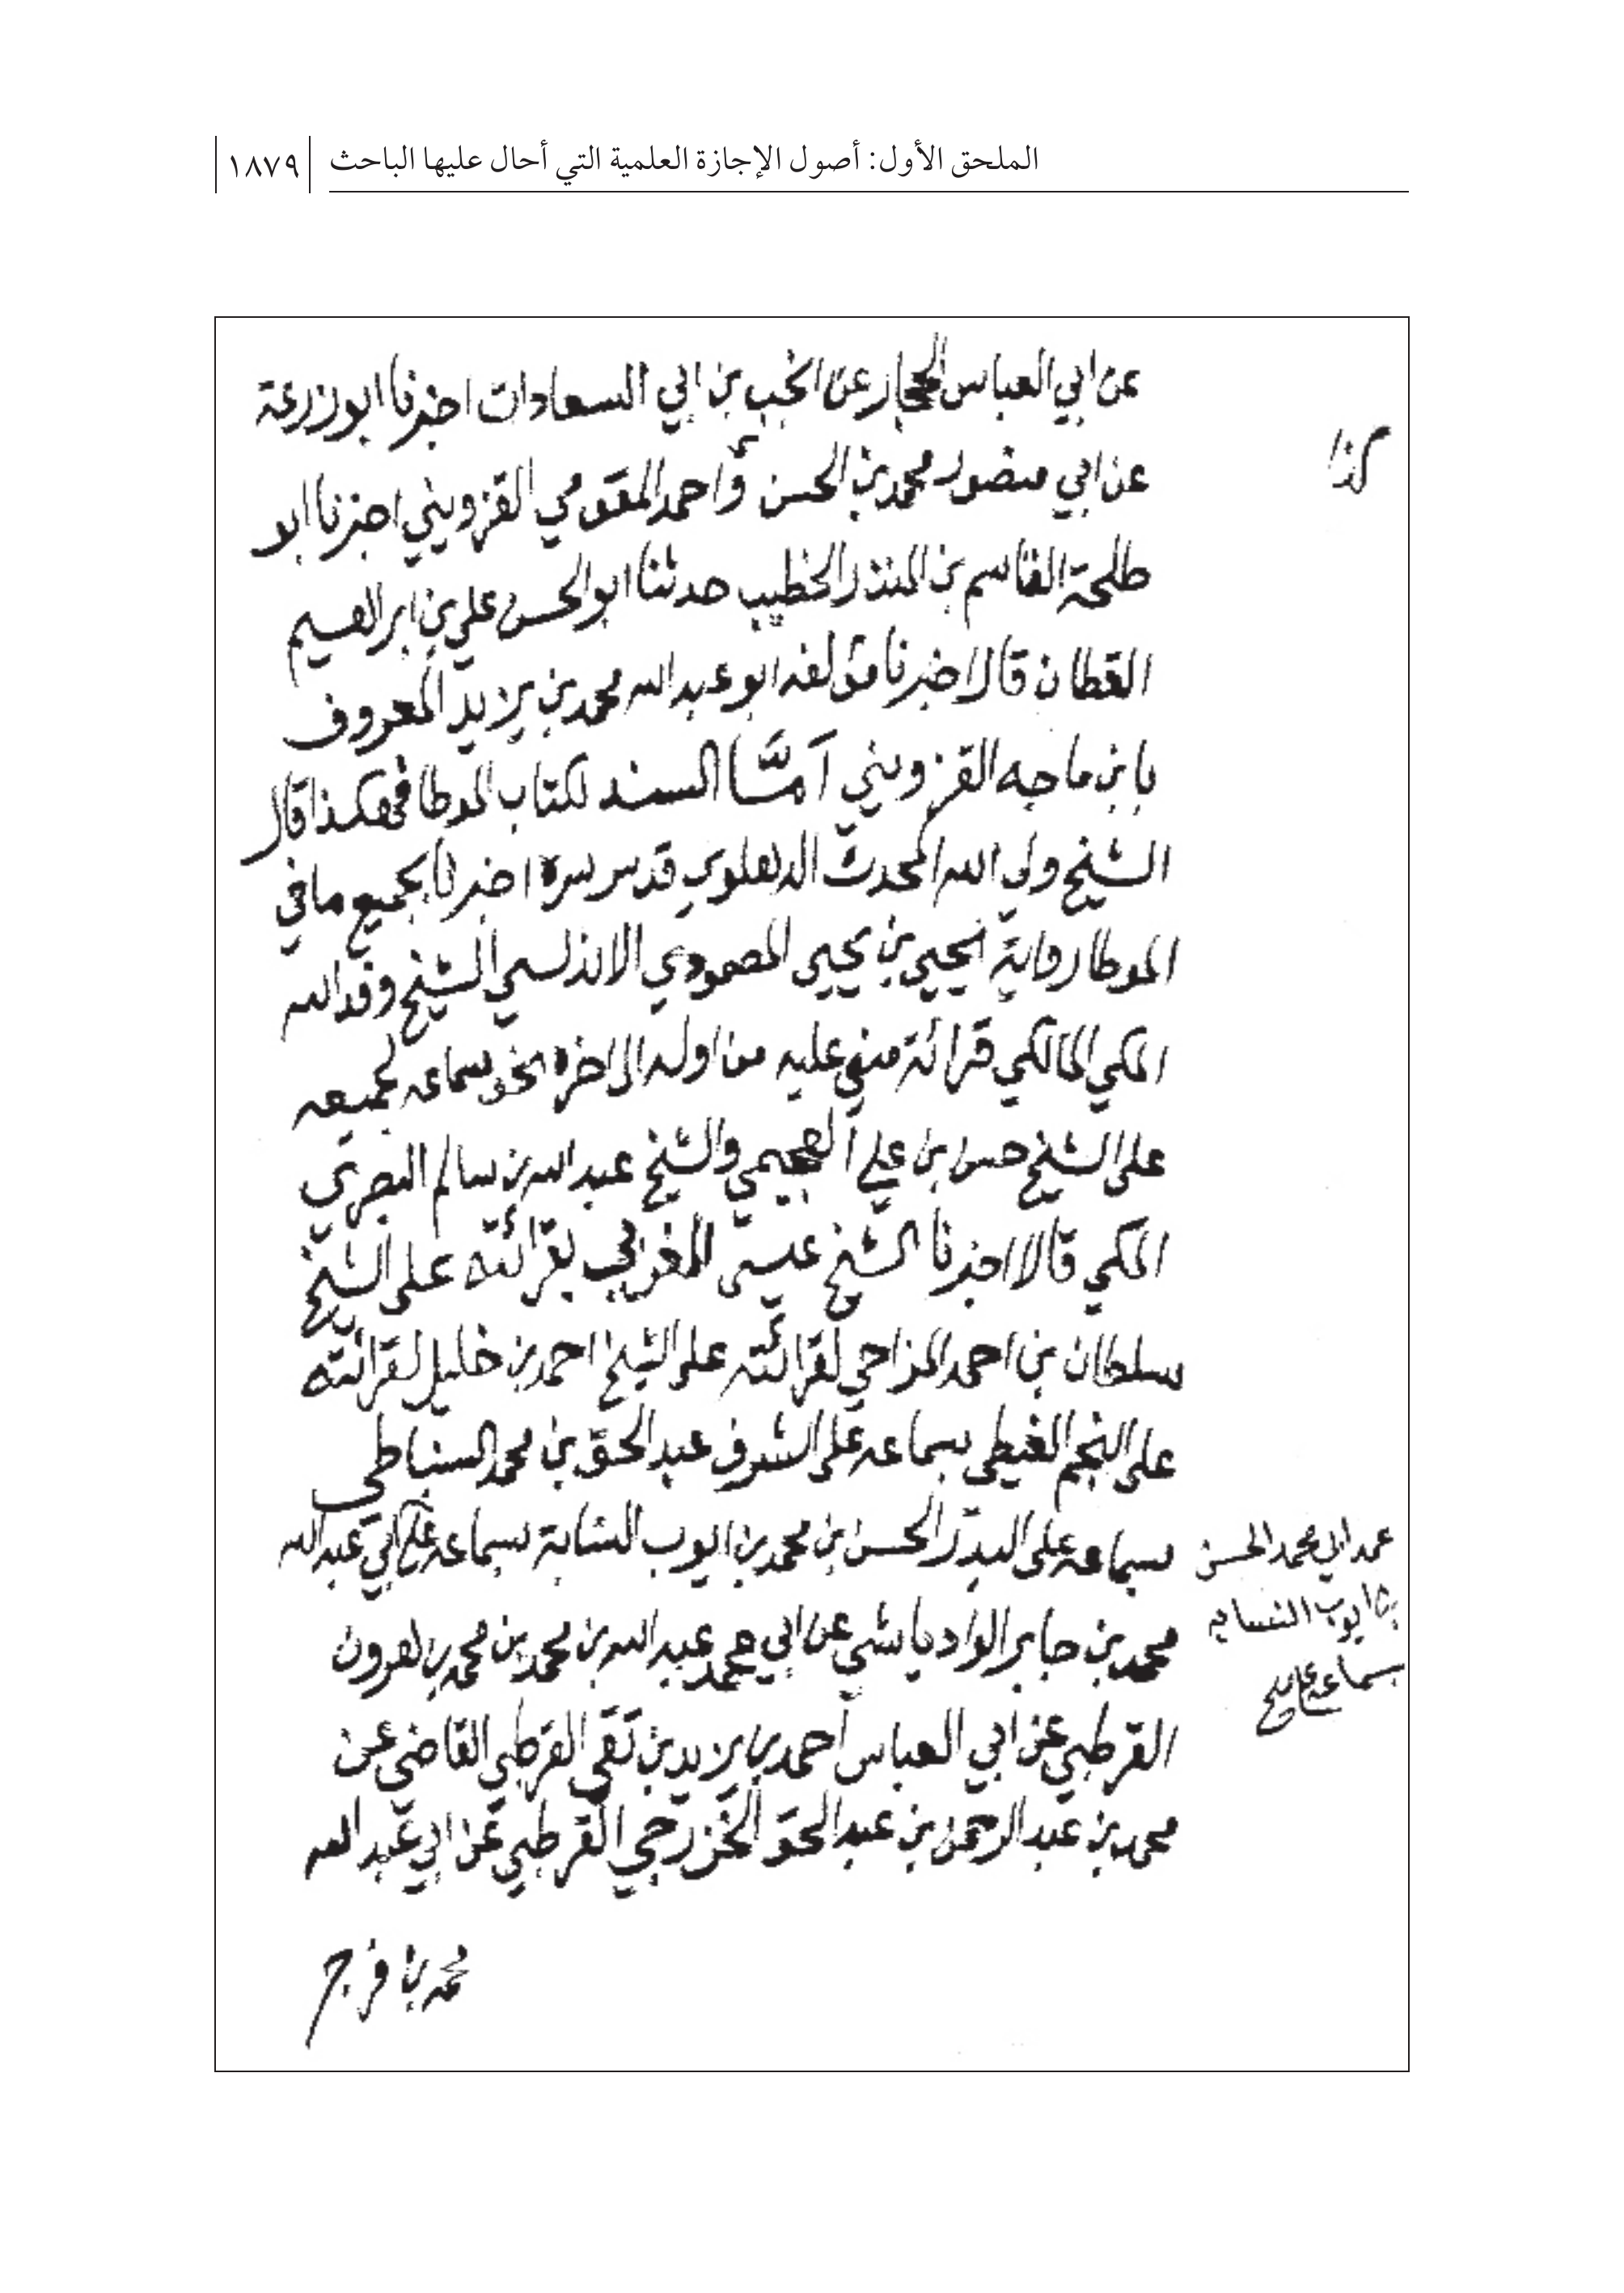 الملحق الأول: أصول الإجازة العلمية التي أحال عليها الباحث ١٨٧٩
عن ابي العباس الحجار عن انجب بن ابي السعادات اخبرنا ابوزرعة
كذا
عن ابي منصور محمد بن الحسن واحمد المقومي القزويني اخبرنا ابو
طلحة القاسم بن المنذر الخطيب حدثنا ابو الحسن علي بن ابراهيم
القطان قال اخبرنا مؤلفه ابو عبد الله محمد بن يزيد المعروف
بابن ماجه القزويني اَمَّا السند لكتاب الموطا فهكذا قال
الشيخ ولي الله المحدث الدهلوي قدس سره اخبرنا بجميع ما في
الموطا رواية يحيى بن يحيى المصمودي الاندلسي الشيخ وفد الله
المكي المالكي قرائة مني عليه من اوله الى اخره بحق سماعه لجميعه
على الشيخ حسن بن علي العجيمي والشيخ عبد الله بن سالم البصري
المكي قالا اخبرنا الشيخ عيسى المغربي بقرائته على الشيخ
سلطان بن احمد المزاحي لقرائته على الشيخ احمد بن خليل لقرائته
على النجم الغيطي بسماعه على الشرف عبد الحق بن محمد السنباطي
بسماعه على البدر الحسن بن محمد بن ايوب النسابة بسماعه على ابي عبد الله
ابي محمد الحسن
بن ايوب النسابه
بسماعه على
محمد بن جابر الوادياشي عن ابي محمد عبد الله بن محمد بن محمد بن هرون
القرطبي عن ابي العباس احمد بن يزيد بن تقي القرطبي القاضي عن
محمد بن عبد الرحمن بن عبد الحق الخزرجي القرطبي عن ابي عبد الله
محمد بن فرج